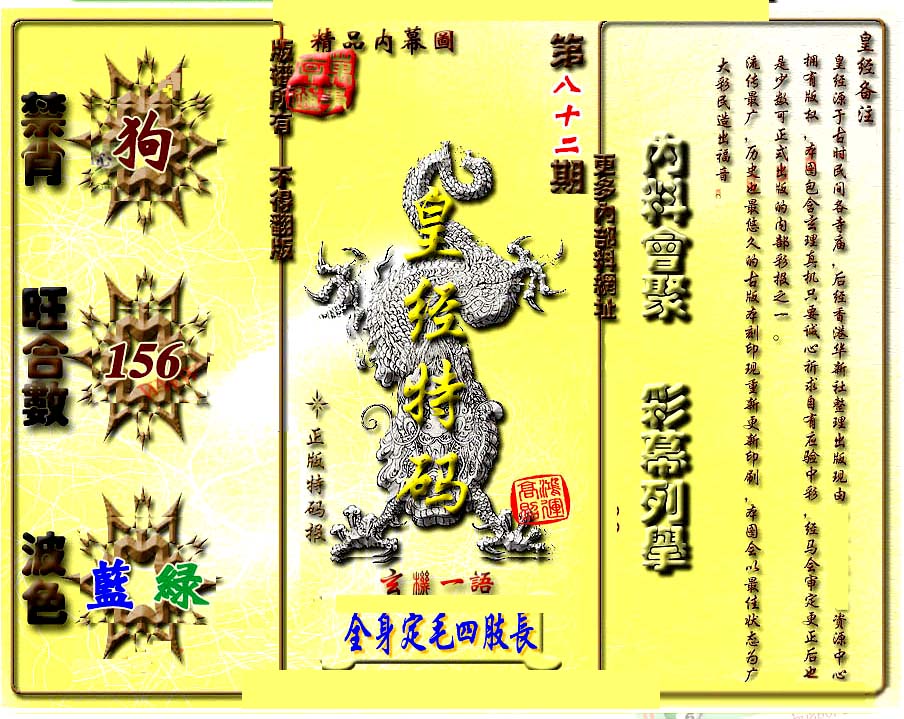 皇经备注
皇经源于古时民间各寺庙,后经香港华新社整理出版现由 资源中心
拥有版权,本图包含玄理真机只要诚心祈求自有应验中彩,经马会审定更正后也
是少数可正式出版的内部彩报之一。
流传最广,历史也最悠久的古版本刻印现重新更新印刷,本图会以最佳状态为广
大彩民造出福音
内料會聚 彩幕列擧
更多內部料網址
第八十二期
精品内幕圖
皇经特码
鴻運
高照
正版特码报
玄機一語
全身定毛四肢長
版權所有 不得翻版
禁肖
狗
旺合數
156
波色
藍 綠